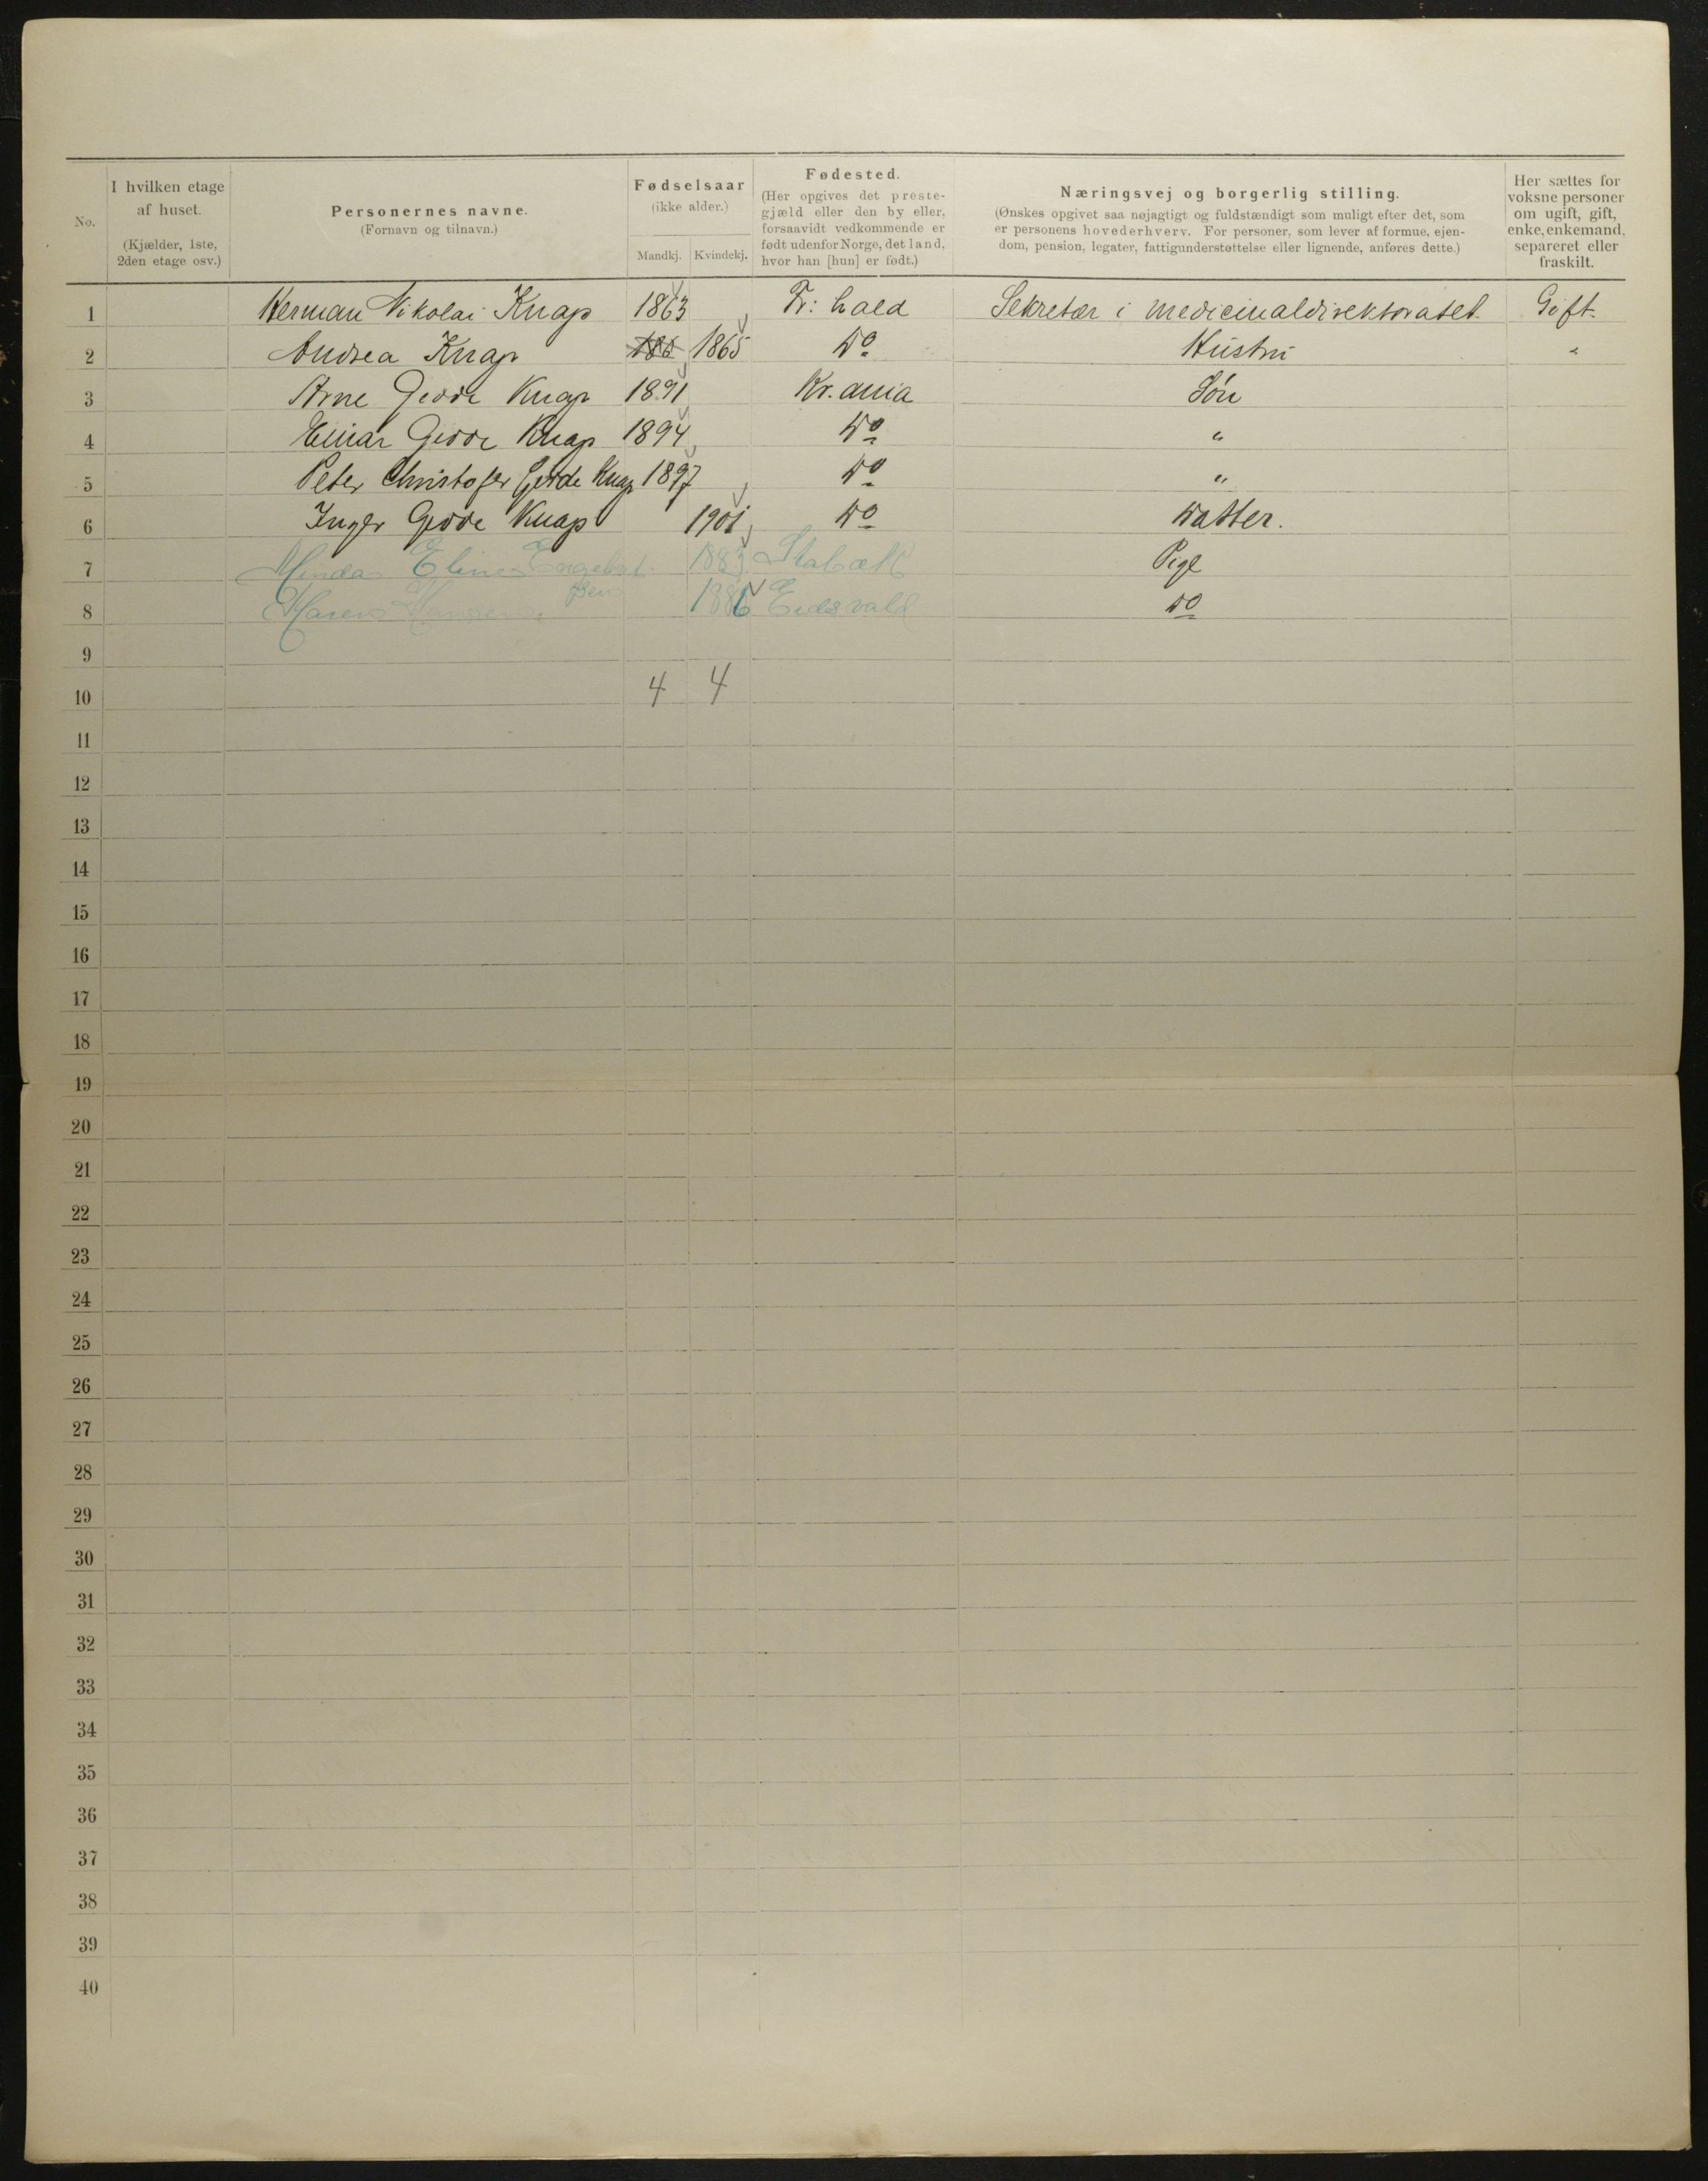 No.
I hvilken etage af huset. (Kjælder, 1ste, 2den etage osv.)
Personernes navne. (Fornavn og tilnavn.)
Fødselsaar (ikke alder.) Mandkj. Kvindekj.
Fødested. (Her opgives det prestegjæld eller den by eller, forsaavidt vedkommende er født udenfor Norge, det land, hvor han [hun] er født.)
Næringsvej og borgerlig stilling. (Ønskes opgivet saa nøjagtigt og fuldstændigt som muligt efter det, som er personens hovederhverv. For personer, som lever af formue, ejendom, pension, legater, fattigunderstøttelse eller lignende, anføres dette.)
Her sættes for voksne personer om ugift, gift, enke, enkemand, separeret eller fraskilt.
1 Herman Nikolai Knap 1863 Fr: hald Sekretær i medicinaldirektoratet. Gift.
2 Andrea Knap 1865 Do Hustru "
3 Arne Gedde Knap 1891 Kr.ania Søn
4 Einar Gedde Knap 1894 Do "
5 Peter Christofer Gedde Knap 1897 Do "
6 Inger Gedde Knap 1901 Do Datter.
7 Minda Eline Engebretsen 1883 Stabæk Pige
8 Maren Hansen 1886 Eidsvald Do
9
10 4 4
11
12
13
14
15
16
17
18
19
20
21
22
23
24
25
26
27
28
29
30
31
32
33
34
35
36
37
38
39
40